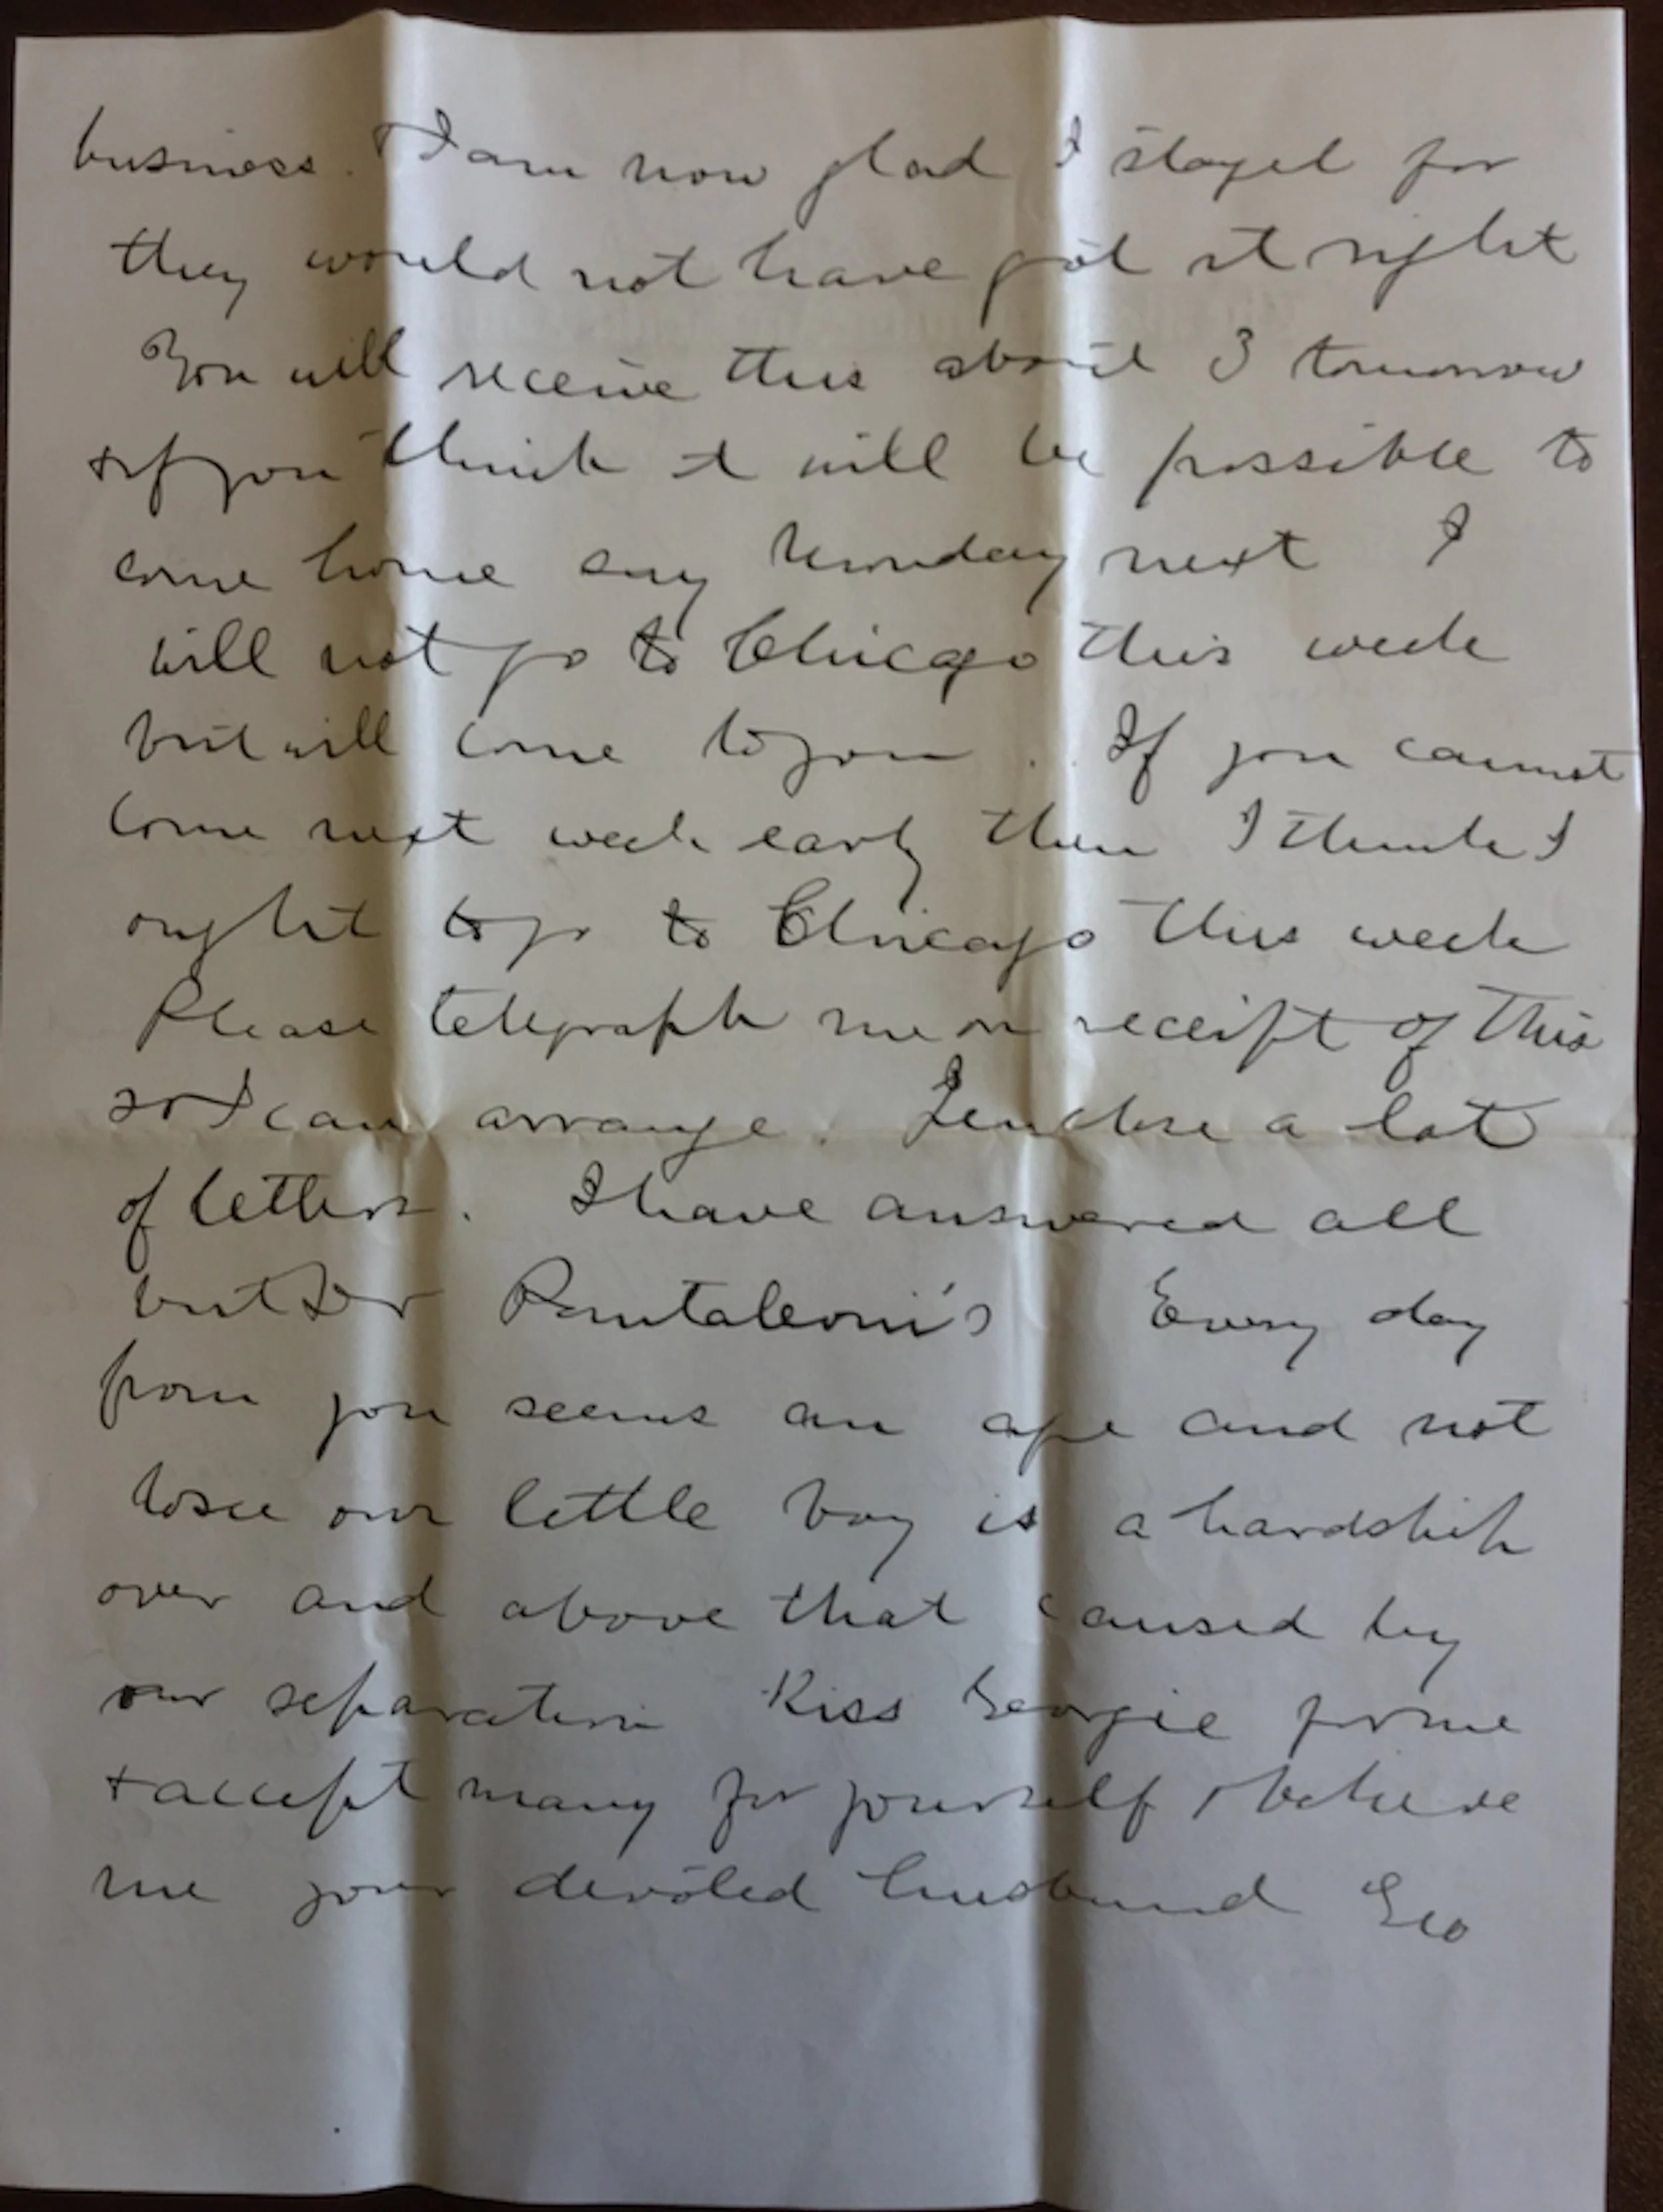 business. I am now glad I stayed for
they would not have got it right
You will receive this about 3 tomorrow
+ if you think it will be possible to
come home say Monday next I
will not go to Chicago this week
but will come to you. If you cannot
come next week early then I think I
ought to go to Chicago this week
Please telegraph me on receipt of this
so I can arrange. I enclose a lot
of letters. I have answered all
but Pantaleoni's Every day
from you seems an age and not
to see our little boy is a hardship
over and above that caused by
our separation Kiss Georgie for me
+ accept many for yourself + believe
me your devoted husband Geo